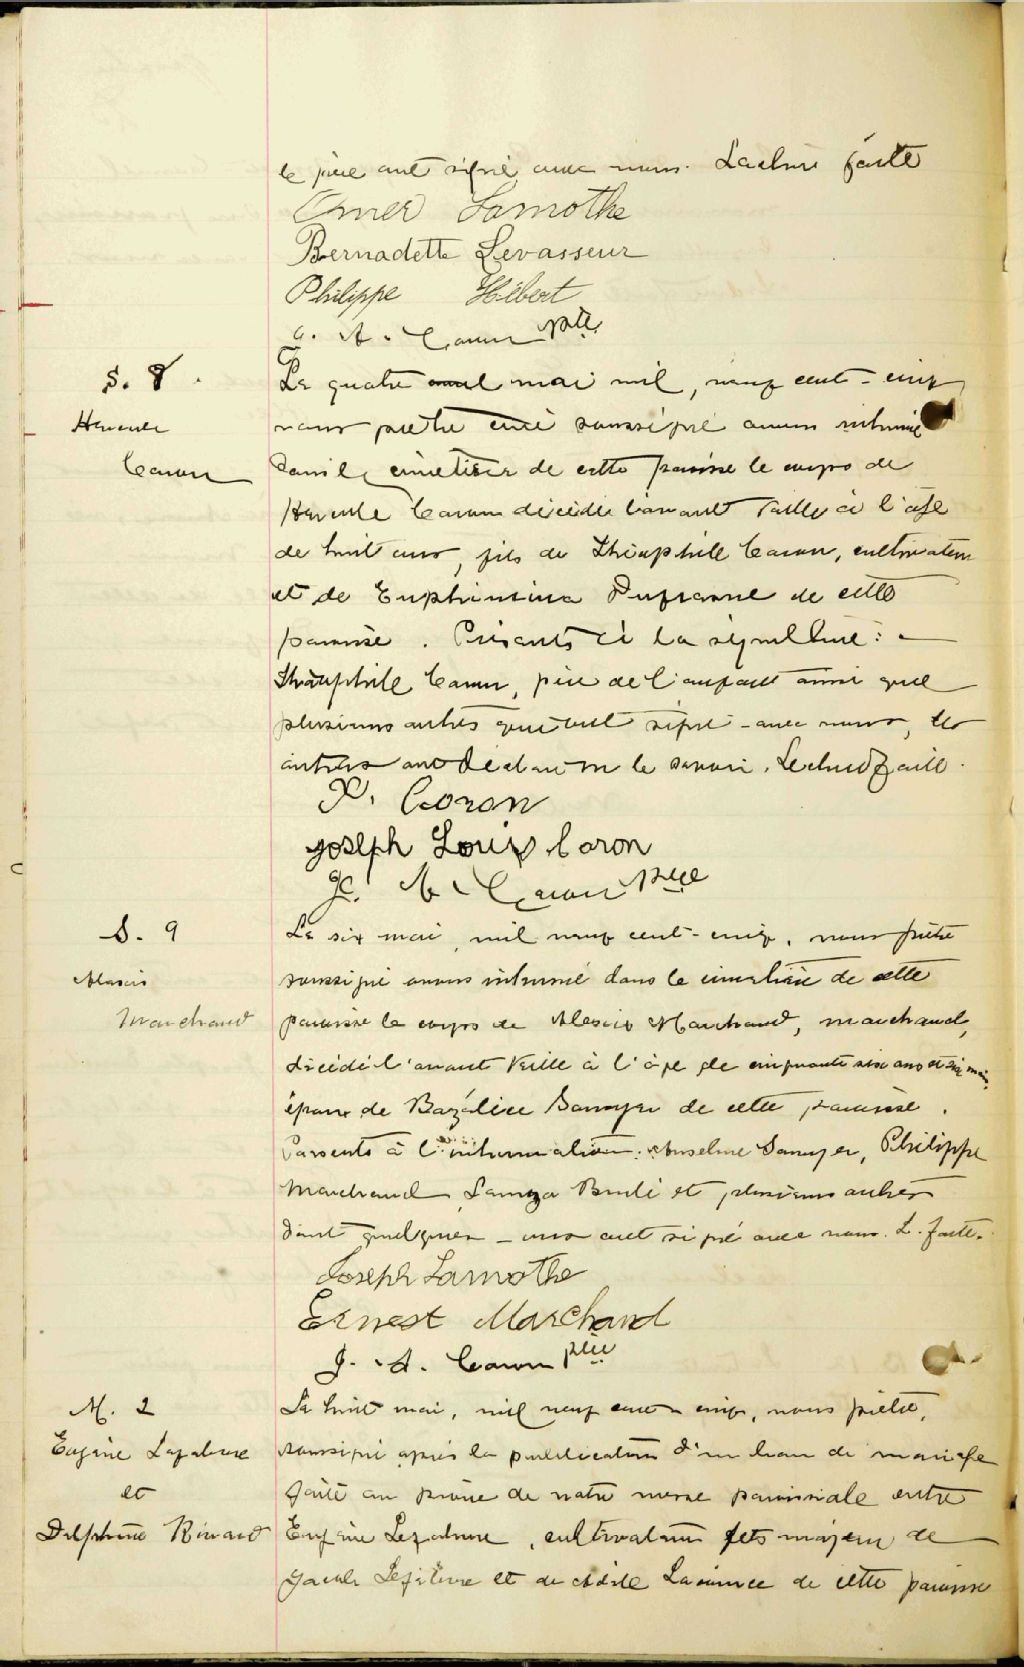 le père ont signé avec nous. Lecture faite
Omer Lamothe
Bernadette Levasseur
Philippe Hébert
J. A. Caron ptre
S. 8.
Hercule
Caron
Le quatre avril mai mil, neuf cent-cinq
nous prêtre curé soussigné avons inhumé
dans le cimetière de cette paroisse le corps de
Hercule Caron décédé l'avant veille à l'âge
de huit ans, fils de Théophile Caron, cultivateur
et de Euphémina Dufresne de cette
paroisse. Présents à la sépulture:
Théophile Caron, père de l'enfant ainsi que
plusieurs autres qui ont signé avec nous, les
autres ont déclaré ne le savoir. Lecture faite.
X. Caron
Joseph Louis Caron
J. A. Caron ptre
S. 9
Alexis
Marchand
Le six mai, mil neuf cent-cinq, nous prêtre
soussigné avons inhumé dans le cimetière de cette
paroisse le corps de Alexis Marchand, marchand,
décédé l'avant veille à l'âge de cinquante six ans et six mois,
époux de Bazélice Samyer de cette paroisse.
Présents à l'inhumation: Anselme Samyer, Philippe
Marchand, Brulé et plusieurs autres
dont quelques-uns ont signé avec nous. L. faite.
Joseph Lamothe
Ernest Marchand
J. A. Caron ptre
M. 2
Eugène Lefebvre
et
Delphine Rivard
Le huit mai, mil neuf cent cinq, nous prêtre,
soussigné après la publication d'un ban de mariage
faite au prône de notre messe paroissiale entre
Eugène Lefebvre, cultivateur fils majeur de
Lefebvre et de de cette paroisse